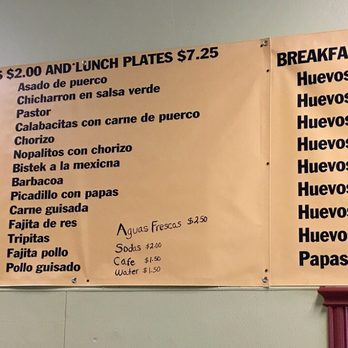 $2.00 AND LUNCH PLATES $7.25
Asado de puerco
Chicharron en salsa verde
Pastor
Calabacitas con carne de puerco
Chorizo
Nopalitos con chorizo
Bistek a la mexicna
Barbacoa
Picadillo con papas
Carne guisada
Fajita de res
Tripitas
Fajita pollo
Pollo guisado
Aguas Frescas $2.50
Sodas $2.00
Cafe $1.50
Water $1.50
BREAKFA
Huevos
Huevos
Huevos
Huevos
Huevos
Huevos
Huevos
Huevo
Papas